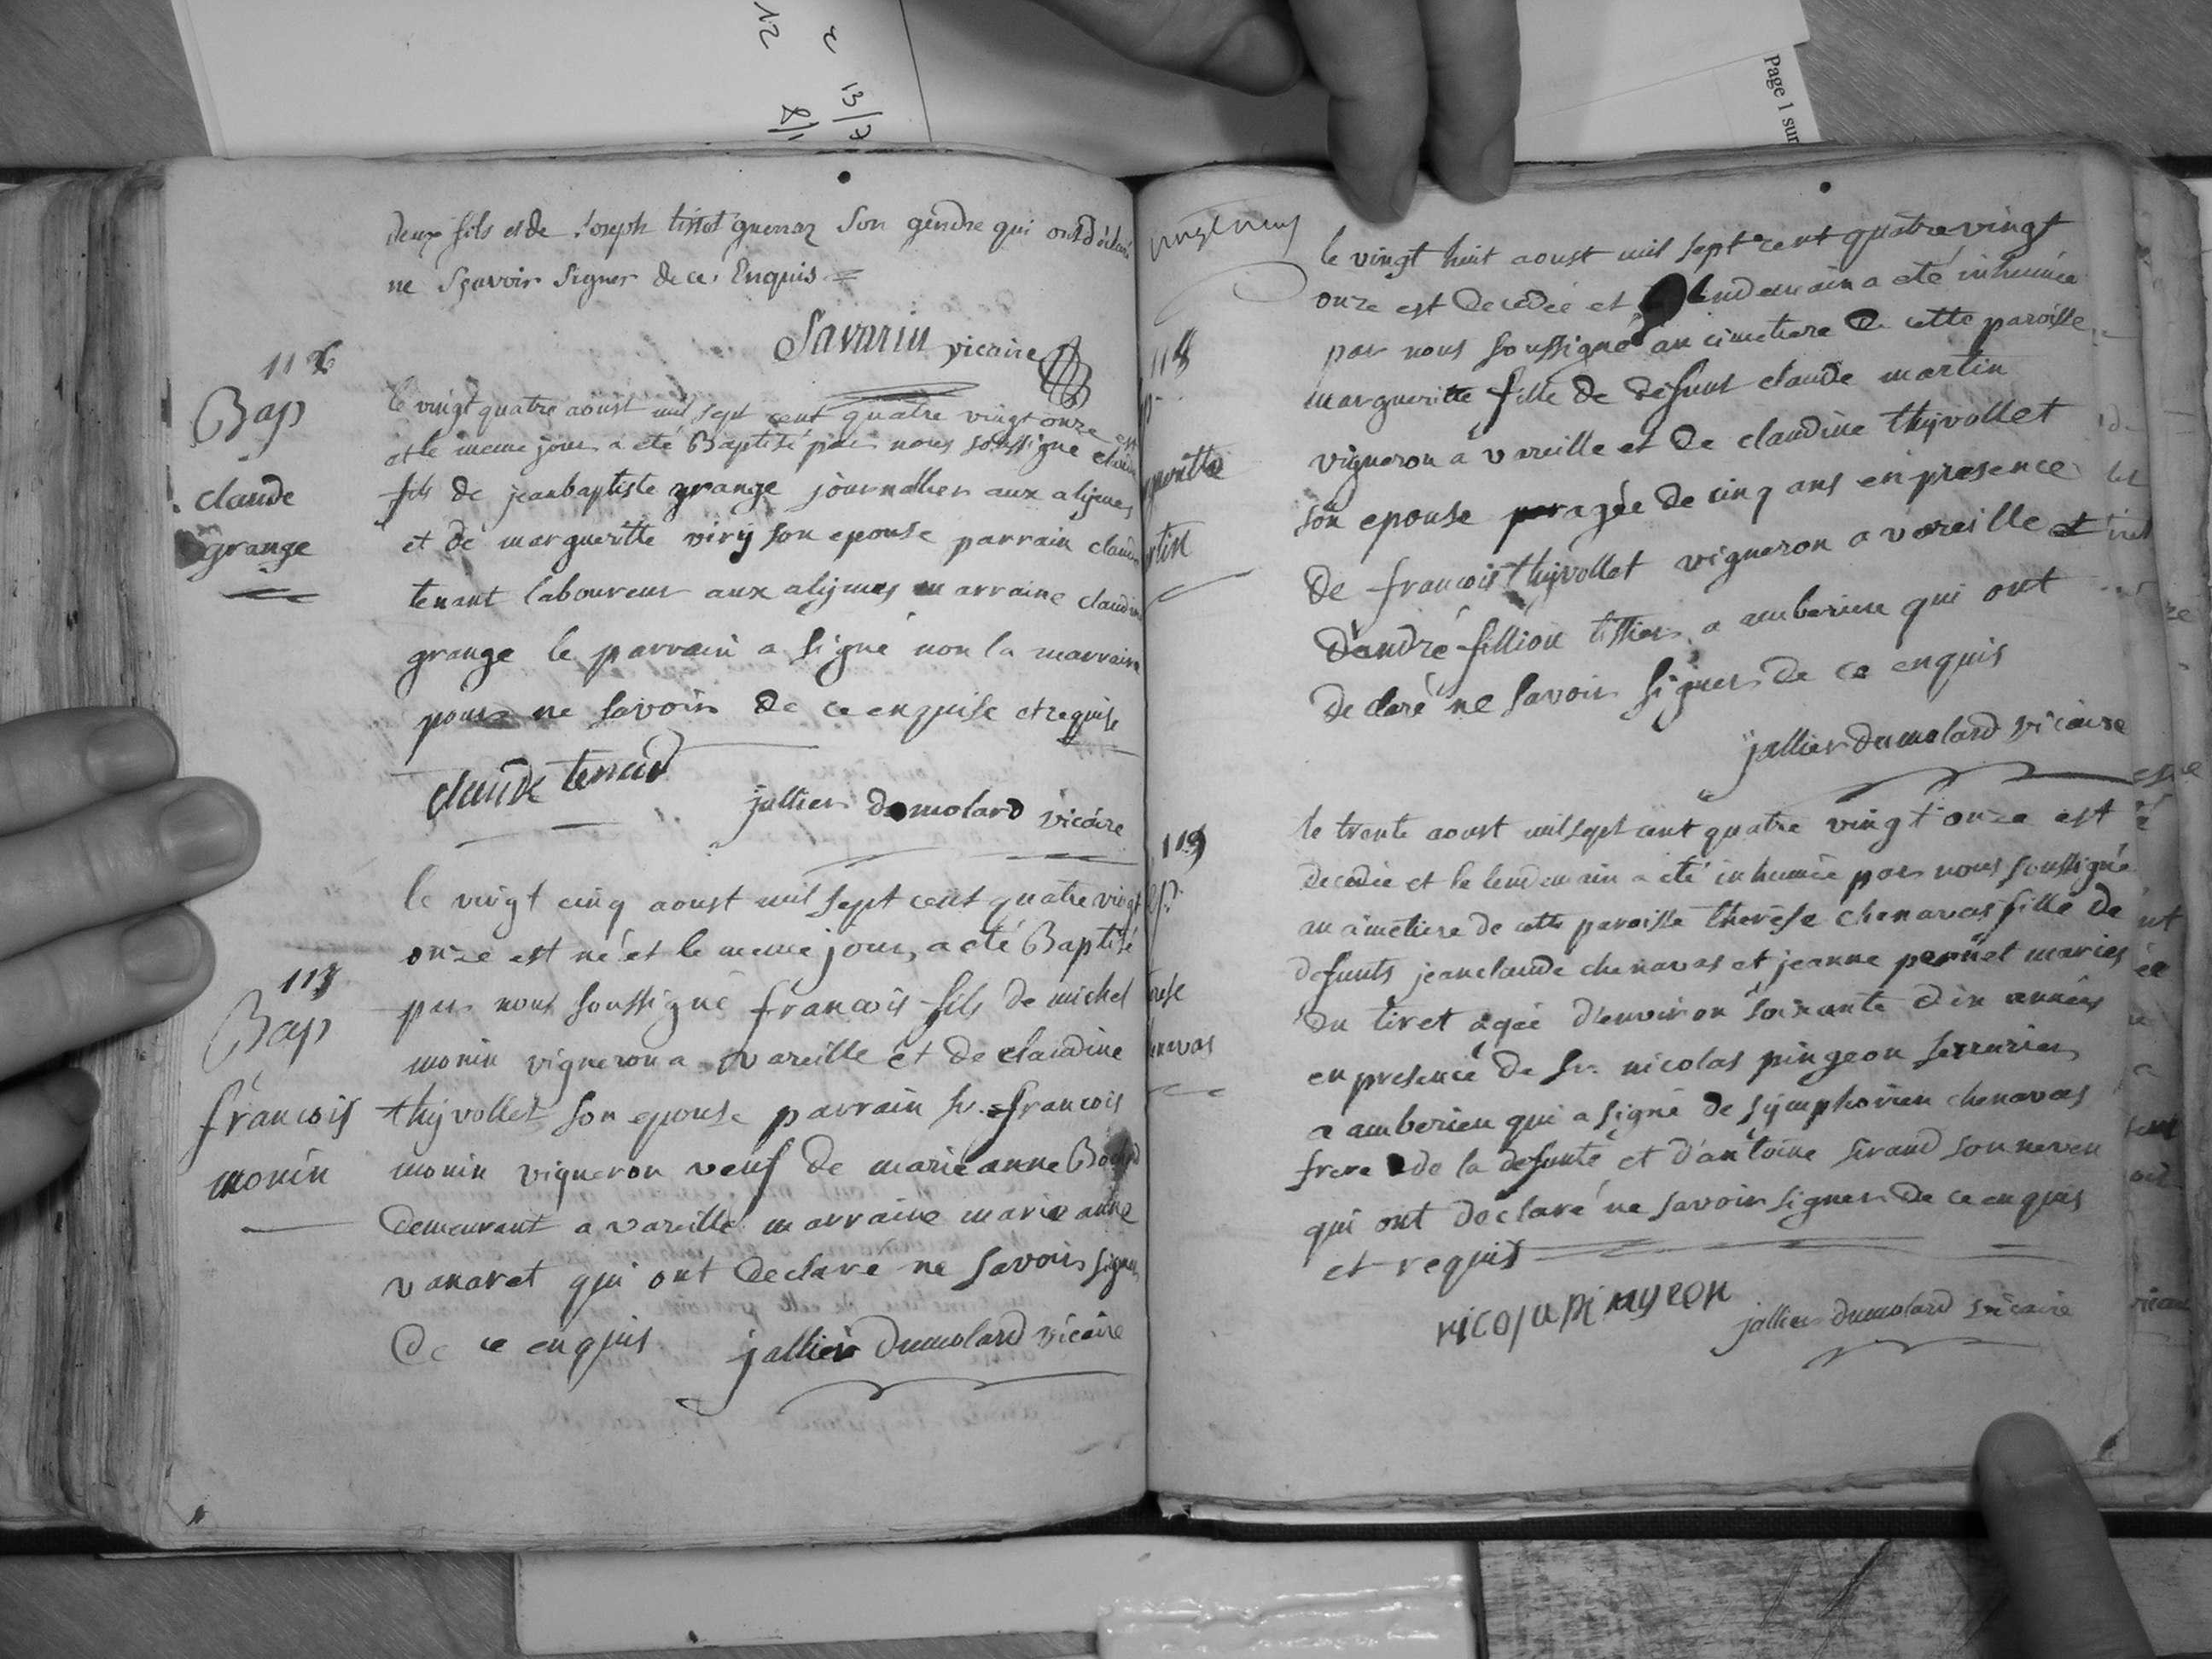 12
13/7
Page 1 sur
deux fils et de joseph tissot guerraz son gendre qui ont déclaré
ne sçavoir signer de ce Enquis =
Savarin vicaire
116
Bap
claude
grange
le vingt quatre aoust mil sept cent quatre vingt onze est
et le meme jour a eté Baptisé par nous soussigné claude
fils de jeanbaptiste grange journallier aux alijmes
et de margueritte viry son epouse parrain claude
tenant laboureur aux alijmes marraine claudine
grange le parrain a signé non la marraine
pour ne savoir de ce enquise et requise
claude tenand
jallier dumolard vicaire
117
Bap
françois
monin
le vingt cinq aoust mil sept cent quatre vingt
onze est né et le meme jour a eté Baptisé
par nous soussigné françois fils de michel
monin vigneron a vareille et de claudine
thyvollet son epouse parrain sr. françois
monin vigneron veuf de marie anne
demeurant a vareille marraine marie anne
vanaret qui ont declaré ne savoir signer
de ce enquis jallier dumolard vicaire
vingt neuf
118
le vingt huit aoust mil sept cent quatre vingt
onze est decedée et lendemain a eté inhumée
par nous soussigné au cimetiere de cette paroisse
margueritte fille de defunt claude martin
vigneron a vareille et de claudine thyvollet
son epouse agée de cinq ans en presence
de francois thyvollet vigneron a vareille et
d'andré fillion tissier a amberieu qui ont
declaré ne savoir signer de ce enquis
jallier dumolard vicaire
119
le trente aoust mil sept cent quatre vingt onze est
decedée et le lendemain a eté inhumée par nous soussigné
au cimetiere de cette paroisse therèse chenavas fille de
defunts jeanclaude chenavas et jeanne pernet mariés
du tiret agée d'environ soixante dix années
en presence de sr. nicolas pingeon serrurier
a amberieu qui a signé de symphorien chenavas
frere de la defunte et d'antoine sirand son neveu
qui ont declaré ne savoir signer de ce enquis
et requis
jallier dumolard vicaire